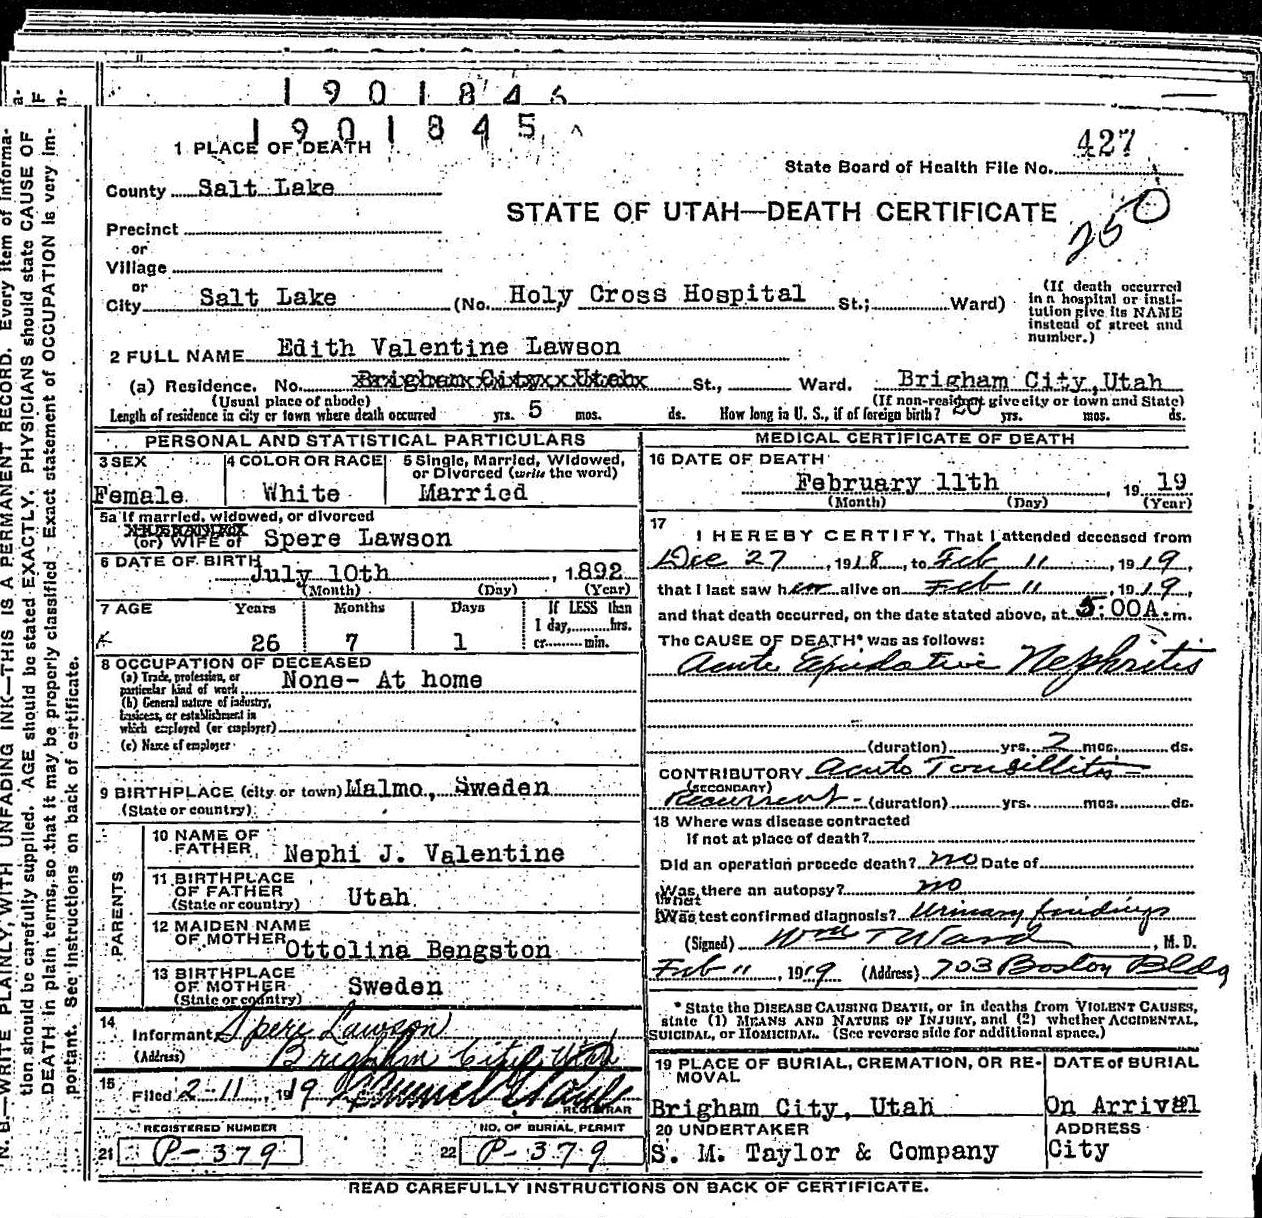 1901846
1901845
1 PLACE OF DEATH
State Board of Health File No. 427
County Salt Lake
250
STATE OF UTAH—DEATH CERTIFICATE
Precinct
or
Village
or
City Salt Lake (No. Holy Cross Hospital St.; Ward)
(If death occurred in a hospital or institution give its NAME instead of street and number.)
2 FULL NAME Edith Valentine Lawson
(a) Residence. No. Brigham City, Utah St., Ward. Brigham City, Utah
(Usual place of abode) (If non-resident give city or town and State)
Length of residence in city or town where death occurred yrs. 5 mos. ds. How long in U. S., if of foreign birth? 20 yrs. mos. ds.
PERSONAL AND STATISTICAL PARTICULARS
3 SEX
Female
4 COLOR OR RACE
White
5 Single, Married, Widowed, or Divorced (write the word)
Married
5a If married, widowed, or divorced
HUSBAND of
(or) WIFE of Spere Lawson
6 DATE OF BIRTH
July 10th, 1892
(Month) (Day) (Year)
7 AGE Years Months Days If LESS than
1 day, hrs.
26 7 1 or min.
8 OCCUPATION OF DECEASED
(a) Trade, profession, or
particular kind of work None- At home
(b) General nature of industry,
business, or establishment in
which employed (or employer)
(c) Name of employer
9 BIRTHPLACE (city or town) Malmo., Sweden
(State or country)
PARENTS
10 NAME OF
FATHER Nephi J. Valentine
11 BIRTHPLACE
OF FATHER
(State or country) Utah
12 MAIDEN NAME
OF MOTHER Ottolina Bengston
13 BIRTHPLACE
OF MOTHER
(State or country) Sweden
14
Informant Spere Lawson
(Address) Brigham City Utah
15
Filed 2-11, 1919
REGISTRAR
REGISTERED NUMBER
21 P-379
NO. OF BURIAL PERMIT
22 P-379
MEDICAL CERTIFICATE OF DEATH
16 DATE OF DEATH
February 11th, 1919
(Month) (Day) (Year)
17
I HEREBY CERTIFY, That I attended deceased from
Dec 27, 1918, to Feb 11, 1919,
that I last saw her alive on Feb 11, 1919,
and that death occurred, on the date stated above, at 5:00A.m.
The CAUSE OF DEATH* was as follows:
Acute Exudative Nephritis
(duration) yrs. 2 mos. ds.
CONTRIBUTORY Acute Tonsillitis -
(SECONDARY)
Recurrent - (duration) yrs. mos. ds.
18 Where was disease contracted
If not at place of death?
Did an operation precede death? no Date of
Was there an autopsy? no
What
Was test confirmed diagnosis? Urinary findings
(Signed) Wm T Ward, M. D.
Feb 11, 1919 (Address) 703 Boston Bldg
* State the DISEASE CAUSING DEATH, or in deaths from VIOLENT CAUSES,
state (1) MEANS AND NATURE OF INJURY, and (2) whether ACCIDENTAL,
SUICIDAL, or HOMICIDAL. (See reverse side for additional space.)
19 PLACE OF BURIAL, CREMATION, OR RE-
MOVAL
Brigham City, Utah
DATE of BURIAL
On Arrival
20 UNDERTAKER
S. M. Taylor & Company
ADDRESS
City
READ CAREFULLY INSTRUCTIONS ON BACK OF CERTIFICATE.
N. B.—WRITE PLAINLY, WITH UNFADING INK—THIS IS A PERMANENT RECORD. Every item of informa-
tion should be carefully supplied. AGE should be stated EXACTLY. PHYSICIANS should state CAUSE OF
DEATH in plain terms, so that it may be properly classified. Exact statement of OCCUPATION is very im-
portant. See instructions on back of certificate.